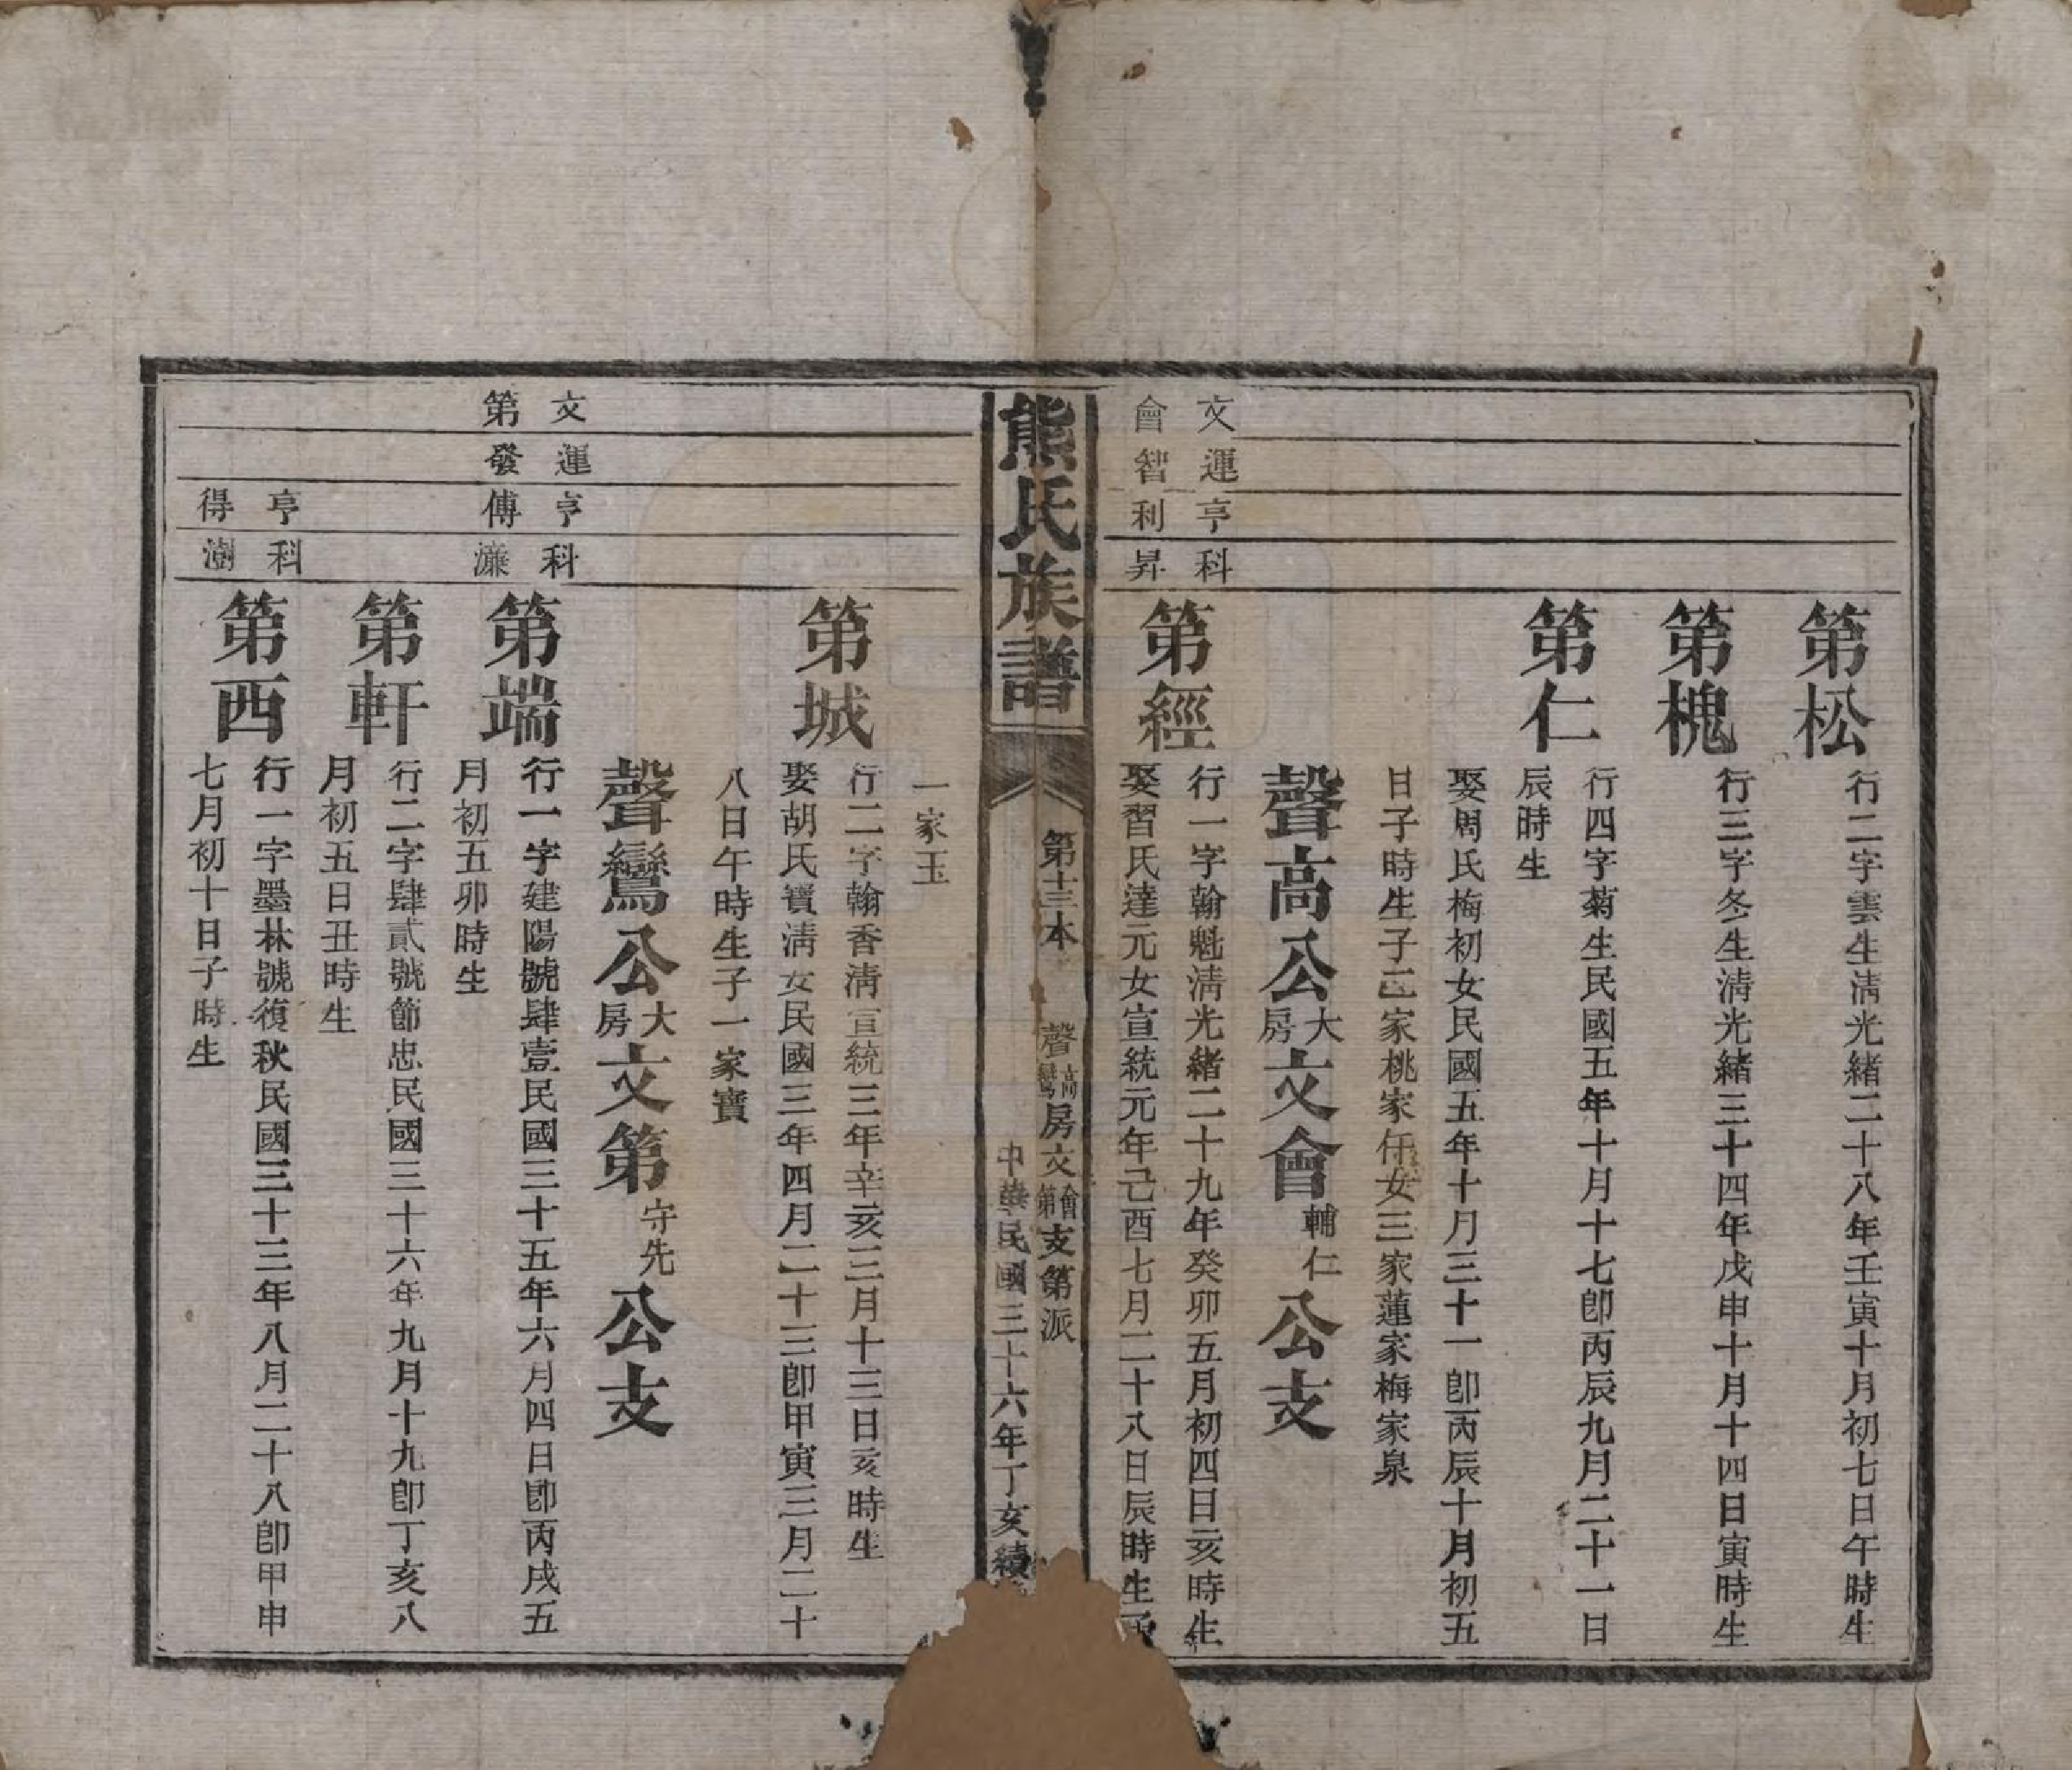 第松
行二字雲生淸光緖二十八年壬寅十月初七日午時生
第槐
行三字冬生淸光緖三十四年戊申十月十四日寅時生
第仁
行四字菊生民國五年十月十七卽丙辰九月二十一日
辰時生
娶周氏梅初女民國五年十月三十一卽丙辰十月初五
日子時生子二家桃家任女三家蓮家梅家泉
文會
運智
亨利
科昇
聲高公大房文會輔仁公支
第經
行一字翰魁淸光緖二十九年癸卯五月初四日亥時生
娶習氏達元女宣統元年己酉七月二十八日辰時生子
熊氏族譜
第十三本
聲高鸞房文會第支第派
中華民國三十六年丁亥續
一家玉
第城
行二字翰香淸宣統三年辛亥三月十三日亥時生
娶胡氏寶淸女民國三年四月二十三卽甲寅三月二十
八日午時生子一家寶
文第
運發
亨傅
科濂
聲鸞公大房文第守先公支
第端
行一字建陽號肆壹民國三十五年六月四日卽丙戌五
月初五卯時生
第軒
行二字肆貳號節忠民國三十六年九月十九卽丁亥八
月初五日丑時生
亨得
科澍
第西
行一字墨林號復秋民國三十三年八月二十八卽甲申
七月初十日子時生